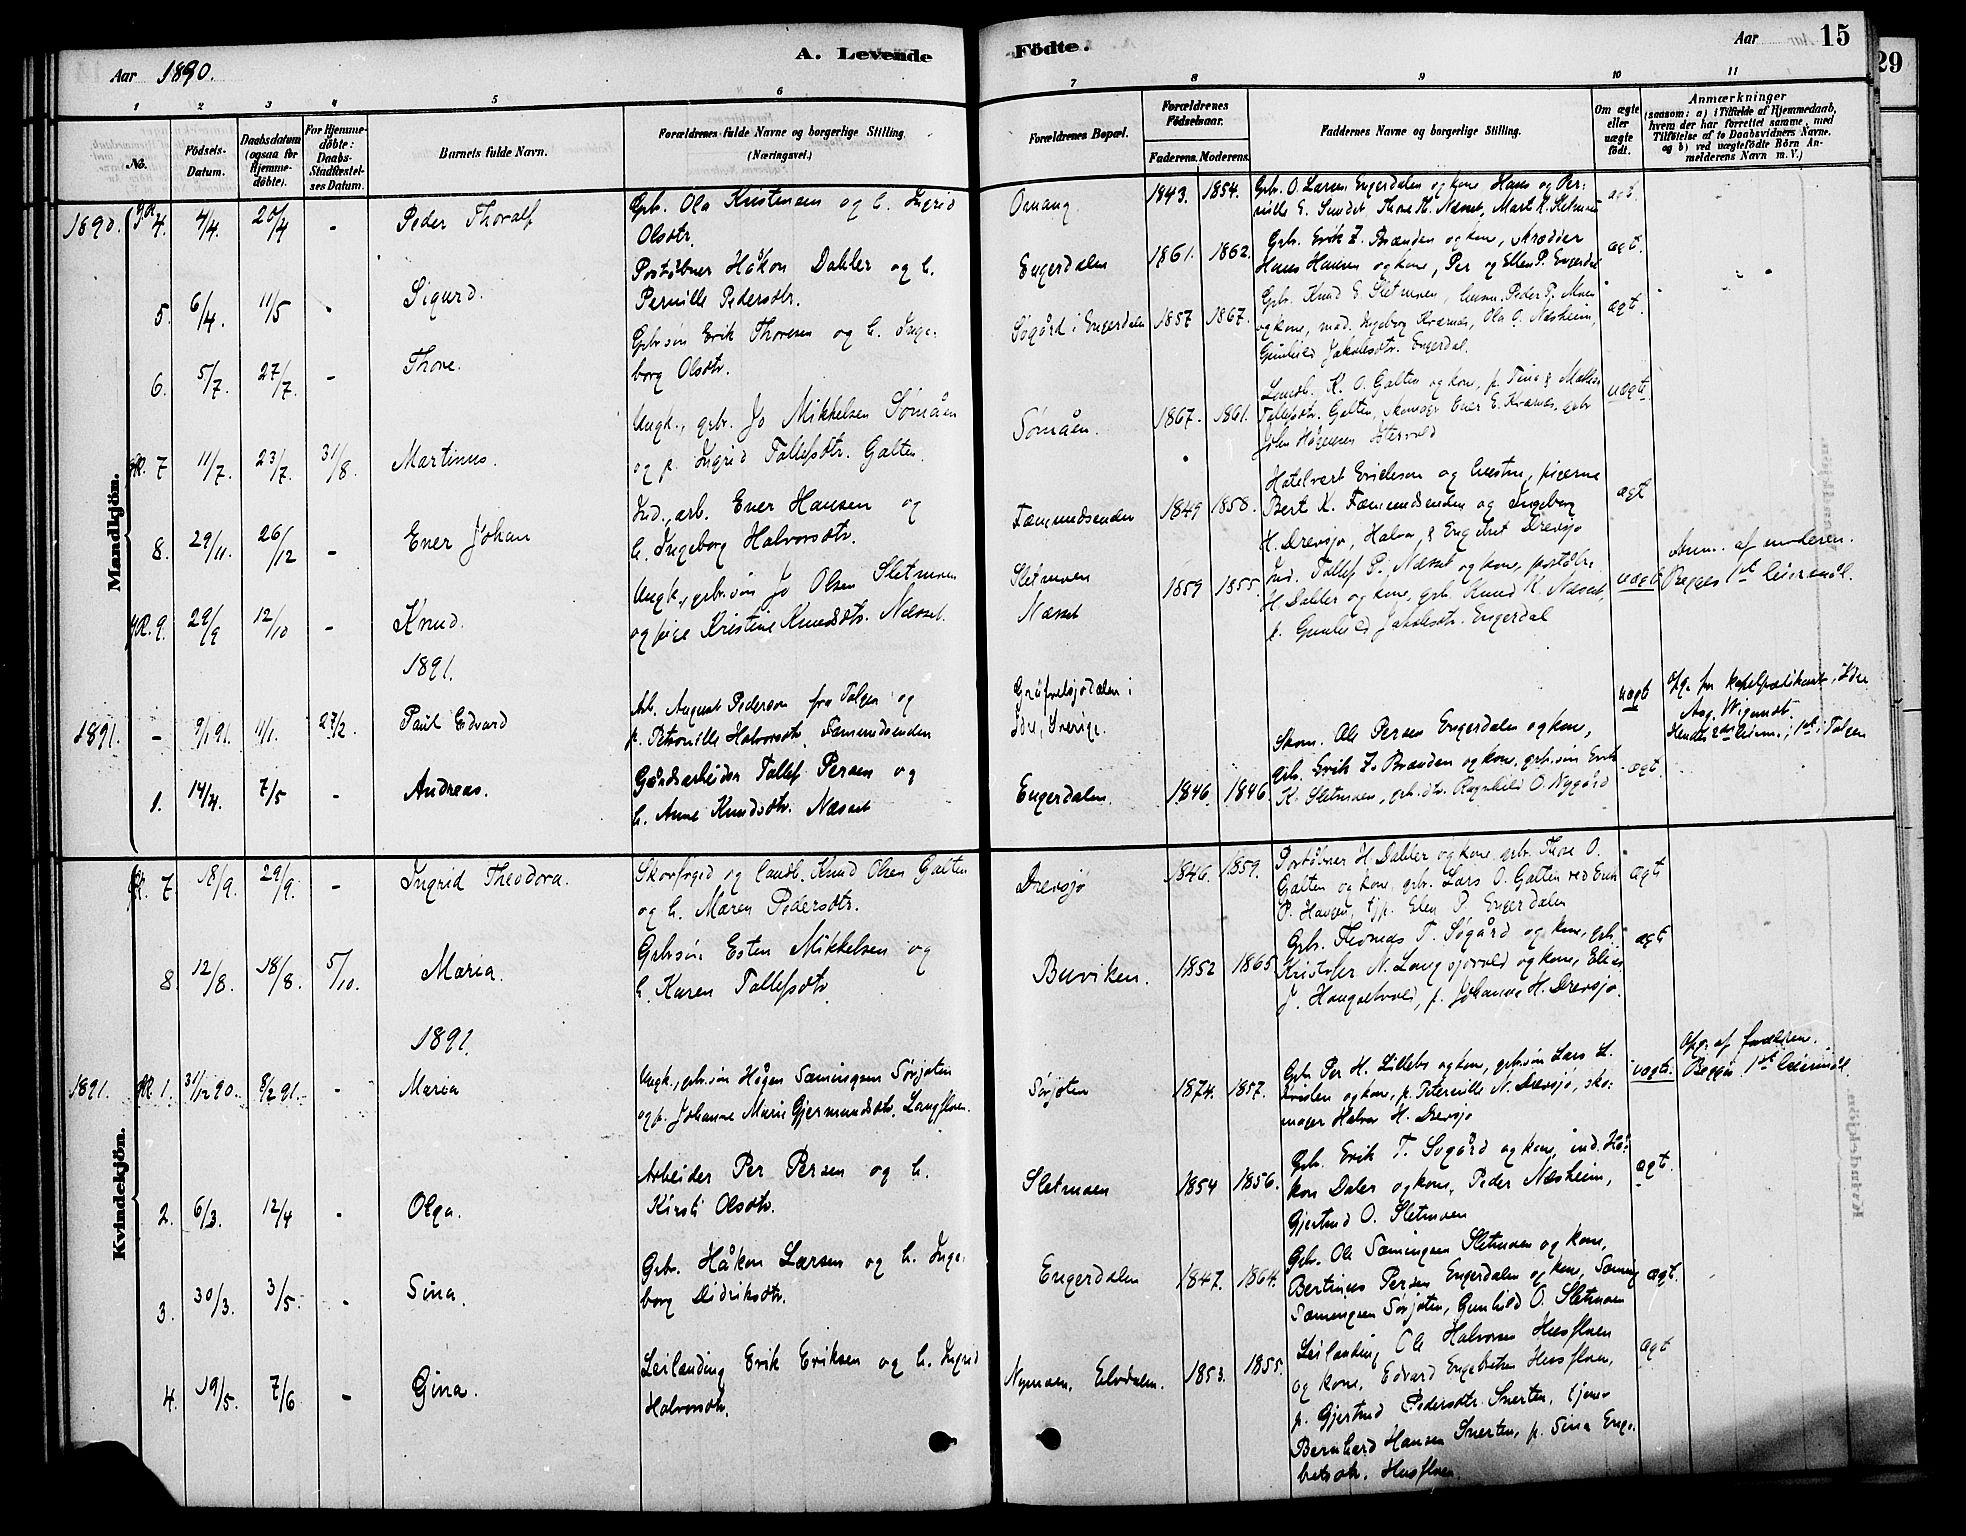 A. Levende Födte.
Aar 1890.
Aar 15
29
1 2 3 4 5 6 7 8 9 10 11
No.
Födsels-Datum.
Daabsdatum (ogsaa for Hjemme-döbte).
For Hjemme-döbte: Daabs-Stadfæstel-ses Datum.
Barnets fulde Navn.
Forældrenes fulde Navne og borgerlige Stilling.
(Næringsvei.)
Forældrenes Bopæl.
Forældrenes Födselsaar.
Faderens. Moderens.
Faddernes Navne og borgerlige Stilling.
Om ægte eller uægte födt.
Anmærkninger
(saasom: a) i Tilfælde af Hjemmedaab, hvem der har forrettet samme, med Tilföielse af to Daabsvidners Navne, og b) ved uægtefödte Börn An-melderens Navn m. V.)
Mandkjön.
1890. 4. 4/4. 20/4 - Peder Thoralf
Grb. Ola Kristensen og h. Ingrid
Olsdtr.
Omang 1843. 1854.
Grb. O. Larsen Engerdalen og kone Hans og Per-
nille E. Sundet Thore Th. Næsset, Marit K. Sletmoen
ægt.
5. 6/4. 11/5 - Sigurd.
Poståbner Håkon Dahler og h.
Pernille Pedersdtr.
Engerdalen 1861. 1862.
Grb. Erik Z. Brænden og kone, skrædder
Hans Hansen og kone, Per og Ellen P. Engerdal
ægt.
6. 5/7. 27/7. - Thore.
Gbrsøn Erik Thoresen og h. Inge-
borg Olsdtr.
Søgård i Engerdalen 1857 1867.
Grb. Knud E. Sletmoen, husm. Peder P. Moen
og kone, mad. Ingeborg Kværnes, Ola O. Næsheim,
Gunhild Jakobsdtr. Engerdal.
ægt.
7 11/7. 23/7. 31/8. Martinus.
Ungk., grbr. Jo Mikkelsen Sømåen
og p. Ingrid Tallefsdtr. Galten.
Sømåen. 1867. 1861.
Landh. K. O. Galten og kone, p. Tina & Mathea
Tallefsdtr. Galten, skomager Ener E. Kværnes, grbr
John Hågensen
uægte
8. 29/11. 26/12 - Ener Johan
Ind., arb. Ener Hansen og
h. Ingeborg Halvorsdtr.
Fæmundsenden 1849 1858.
Hotelvert Erichsen og hustru, pigerne
Berit K. Fæmundsenden og Ingeborg
H. Drevsjø, Halvor & Engebret Drevsjø
ægt
9. 29/9 12/10 - Knud.
Ungk., grbr.søn Jo Olsen Sletmoen
og pige Kristine Knudsdtr. Næsset
Sletmoen
Næsset
1859 1855.
Ind. Tallef P. Næsset og kone, poståbn.
H. Dahler og kone, grb. Knud K. Næsset,
p. Gunhild Jakobsdtr. Engerdal
uægt.
Anm. af moderen.
Begges 1ste leiermål.
1891.
1891. - 9/1 91. 4/1. 27/2. Paul Edvard
Arb. August Pederson fra Tolgen og
p. Petronille Halvorsdtr. Fæmundsenden
Grufvelsjødalen i
Idre, Sverige.
uægt
Opg. fra kapelprædikant i Idre
Aug. Wigandt.
1. 14/4. 7/5 - Andreas.
Gårdsarbeider Tallef Persen og
h. Anne Knudsdtr. Næsset
Engerdalen. 1846. 1846
Skom. Ole Persen Engerdalen og kone,
grb. Erik Z. Brænden og kone, grb.søn Erik
K. Sletmoen, grb.dtr. Ragnhild O. Nygård
ægt.
Kvindekjön.
7 18/9. 29/9. - Ingrid Theodora.
Skovfoged og landh. Knud Olsen Galten
og h. Maren Pedersdtr.
Drevsjø 1846. 1859.
Poståbner H. Dahler og kone, grb. Thore O.
Galten og kone, grb. Lars O. Galten ved Enk
P. Haugen, tjp. Elen P. Engerdalen
ægt
8 12/8. 18/8. 5/10. Maria.
Gbrsøn Esten Mikkelsen og
h. Karen Tallefsdtr
Buviken. 1852 1865
Grb. Thomas T. Søgård og kone, grb.
Kristofer N. Langsjøvold og kone, Elias
J. Haugsetvold, p. Johanne H. Drevsjø.
ægt
1891.
1891. 1. 31/12 90. 8/2 91. - Maria
Ungk., gbr.søn Hågen Sæmingsen Sørjoten
og p. Johanne Marie Gjermundsdtr. Langfloen.
Sørjoten 1874. 1857.
Grb Per H. Lillebo og kone, gbrsøn Lars L.
Kvislen og kone, p. Peternille N. Drevsjø, sko-
mager Halvor H. Drevsjø
uægte.
Opg. af forældrene.
Begges 1ste leiermål.
2. 6/3. 12/4 - Olga.
Arbeider Per Persen og h.
Kirsti Olsdtr.
Sletmoen 1854 1856.
Grb. Erik T. Søgård og kone, ind. Hå-
kon Daler og kone, Peder Næsheim,
Gjertrud O. Sletmoen
ægt.
3. 30/3. 3/5. - Sina.
Grb. Håkon Larsen og h. Inge-
borg Didriksdtr.
Engerdalen 1847. 1864.
Grb. Ole Sæmingsen Sletmoen og kone,
Bertinus Persen Engerdalen og kone, Sæming
Sæmingsen Sørjoten, Gunhild O. Sletmoen
ægt.
4. 19/5. 7/6 - Gina.
Leilænding Erik Eriksen og h. Ingrid
Halvorsdtr.
Nymoen, Elvdalen. 1853. 1855.
Leilænding Ole Halvorsen Husfloen
og kone, Edvard Engebretsen Husfloen,
p. Gjertrud Pedersdtr. Snerten, tjener
Bernhard Hansen Snerten, p. Sina Enge-
bretsdtr. Husfloen.
ægt